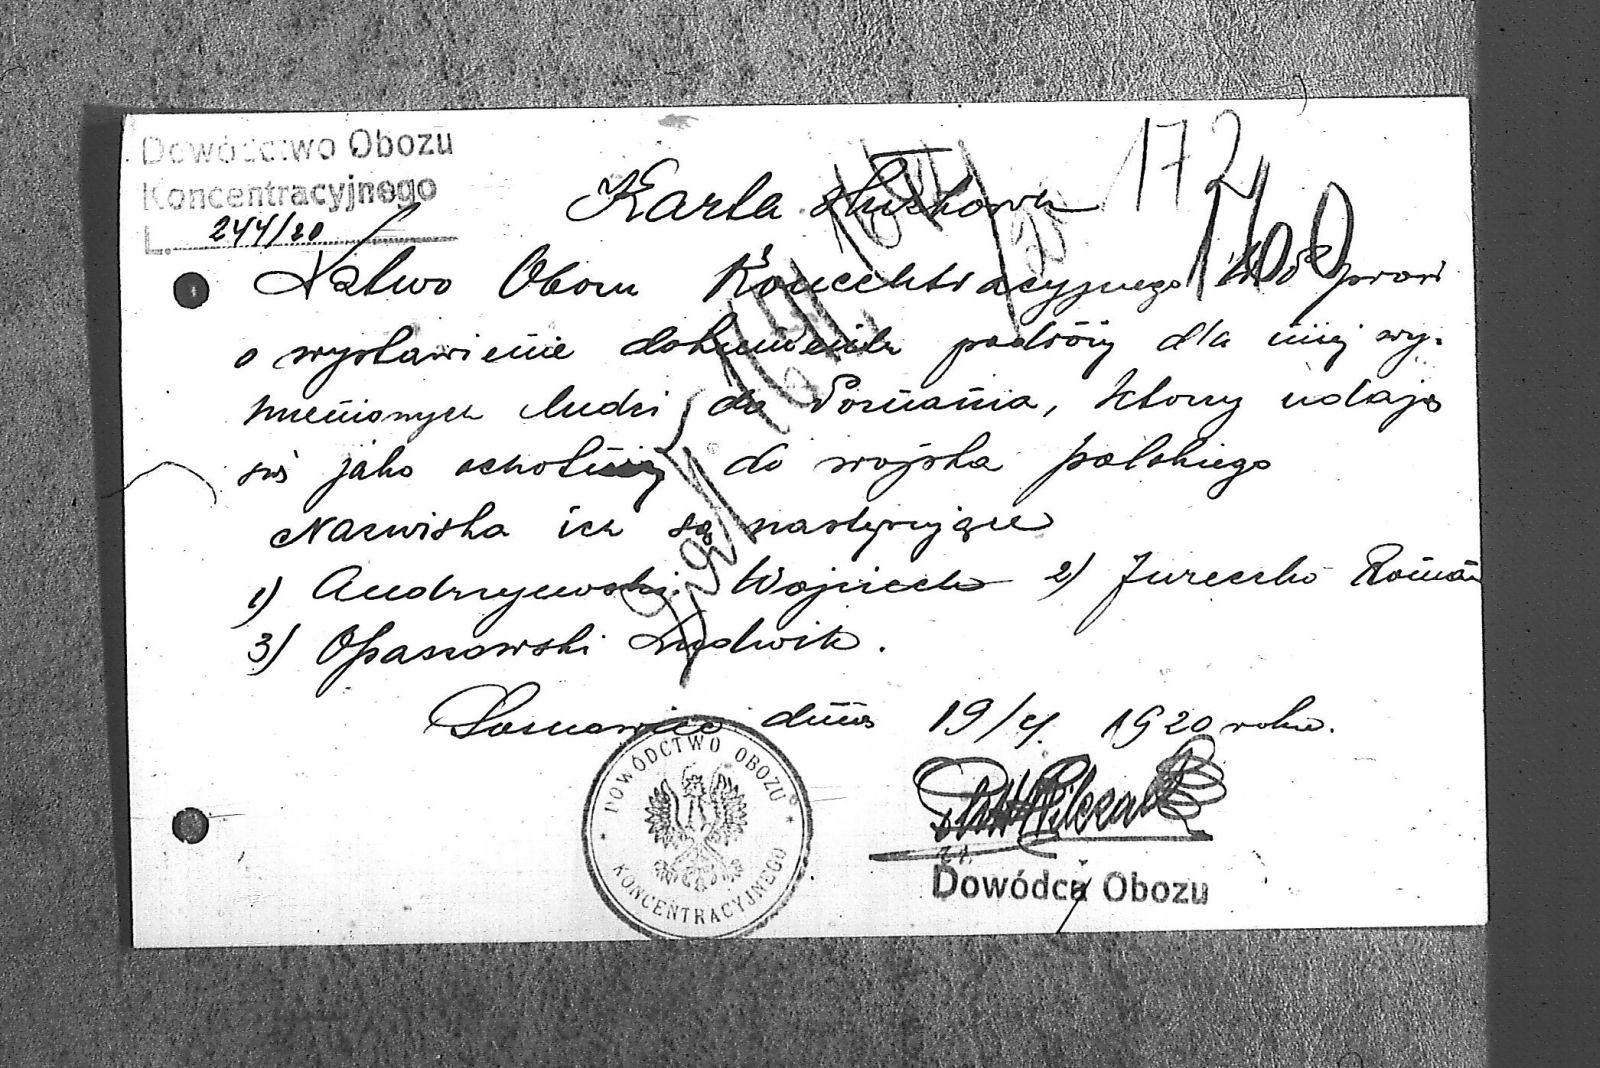 Dowództwo Obozu
Koncentracyjnego
L. 244/20
172
Karta służbowa
Dztwo Obozu Koncentracyjnego prosi
o wystawienie dokumentu podróży dla niżej wy-
mienionych ludzi do Poznania, którzy udają
się jako ochotnicy do wojska polskiego
Nazwiska ich są następujące
1) Andrzyewski Wojciech 2) Jureczko Roman
3) Opassowski Ludwik.
Sosnowiec dnia 19/4. 1920 roku.
DOWÓDCTWO OBOZU
KONCENTRACYJNEGO
Dowódca Obozu